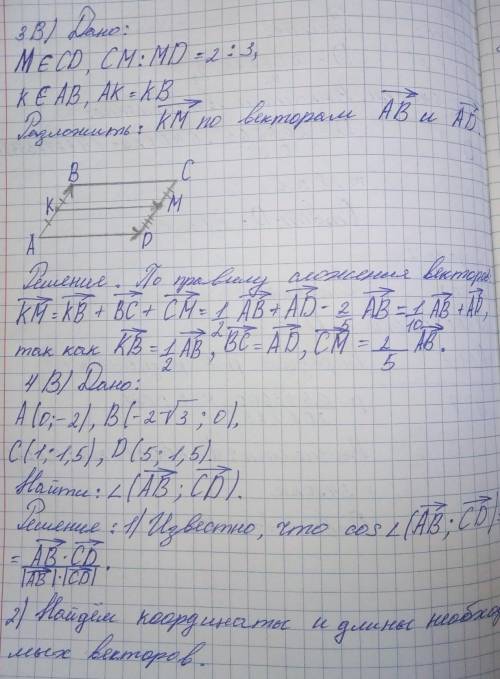 3В) Дано:
M∈CD, CM:MD=2:3,
K∈AB, AK=KB
Разложить: KM по векторам AB и AD.
B C
K M
A D
Решение. По правилу сложения векторов:
KM=KB+BC+CM=1/2 AB+AD-2/5 AB=1/10 AB+AD,
так как KB=1/2 AB, BC=AD, CM=2/5 AB.
4В) Дано:
A(0;-2), B(-2√3;0),
C(1;1,5), D(5;1,5).
Найти: ∠(AB;CD).
Решение: 1) Известно, что cos∠(AB;CD)
= AB·CD / |AB|·|CD|.
2) Найдём координаты и длины необхо
мых векторов.